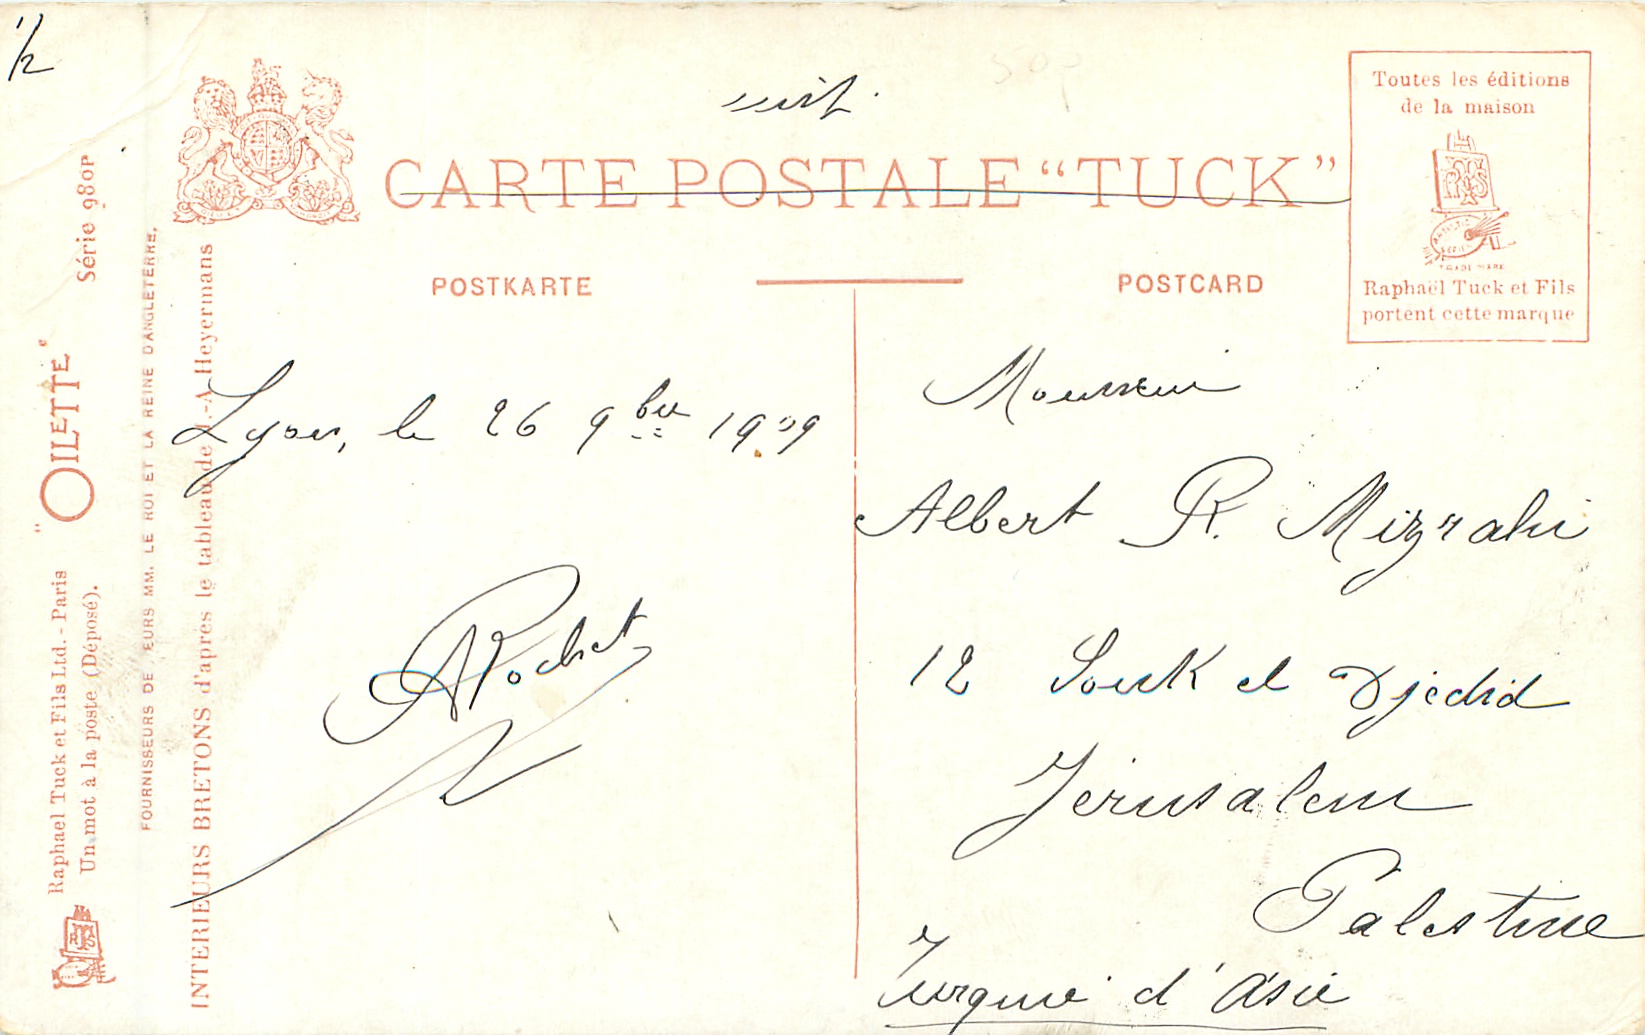 1/2
CARTE POSTALE “TUCK”
POSTKARTE
POSTCARD
Toutes les éditions
de la maison
TRADE MARK
Raphaël Tuck et Fils
portent cette marque
Lyon, le 26 9bre 1909
ARochet
Monsieur
Albert R. Mizrahi
12 Souk el Djedid
Jérusalem
Palestine
Turquie d'Asie
"OILETTE" Série 980P
Raphael Tuck et Fils Ltd. - Paris
Un mot à la poste (Déposé).
FOURNISSEURS DE EURS MM. LE ROI ET LA REINE D'ANGLETERRE.
INTERIEURS BRETONS d'après le tableau de J.-A. Heyermans